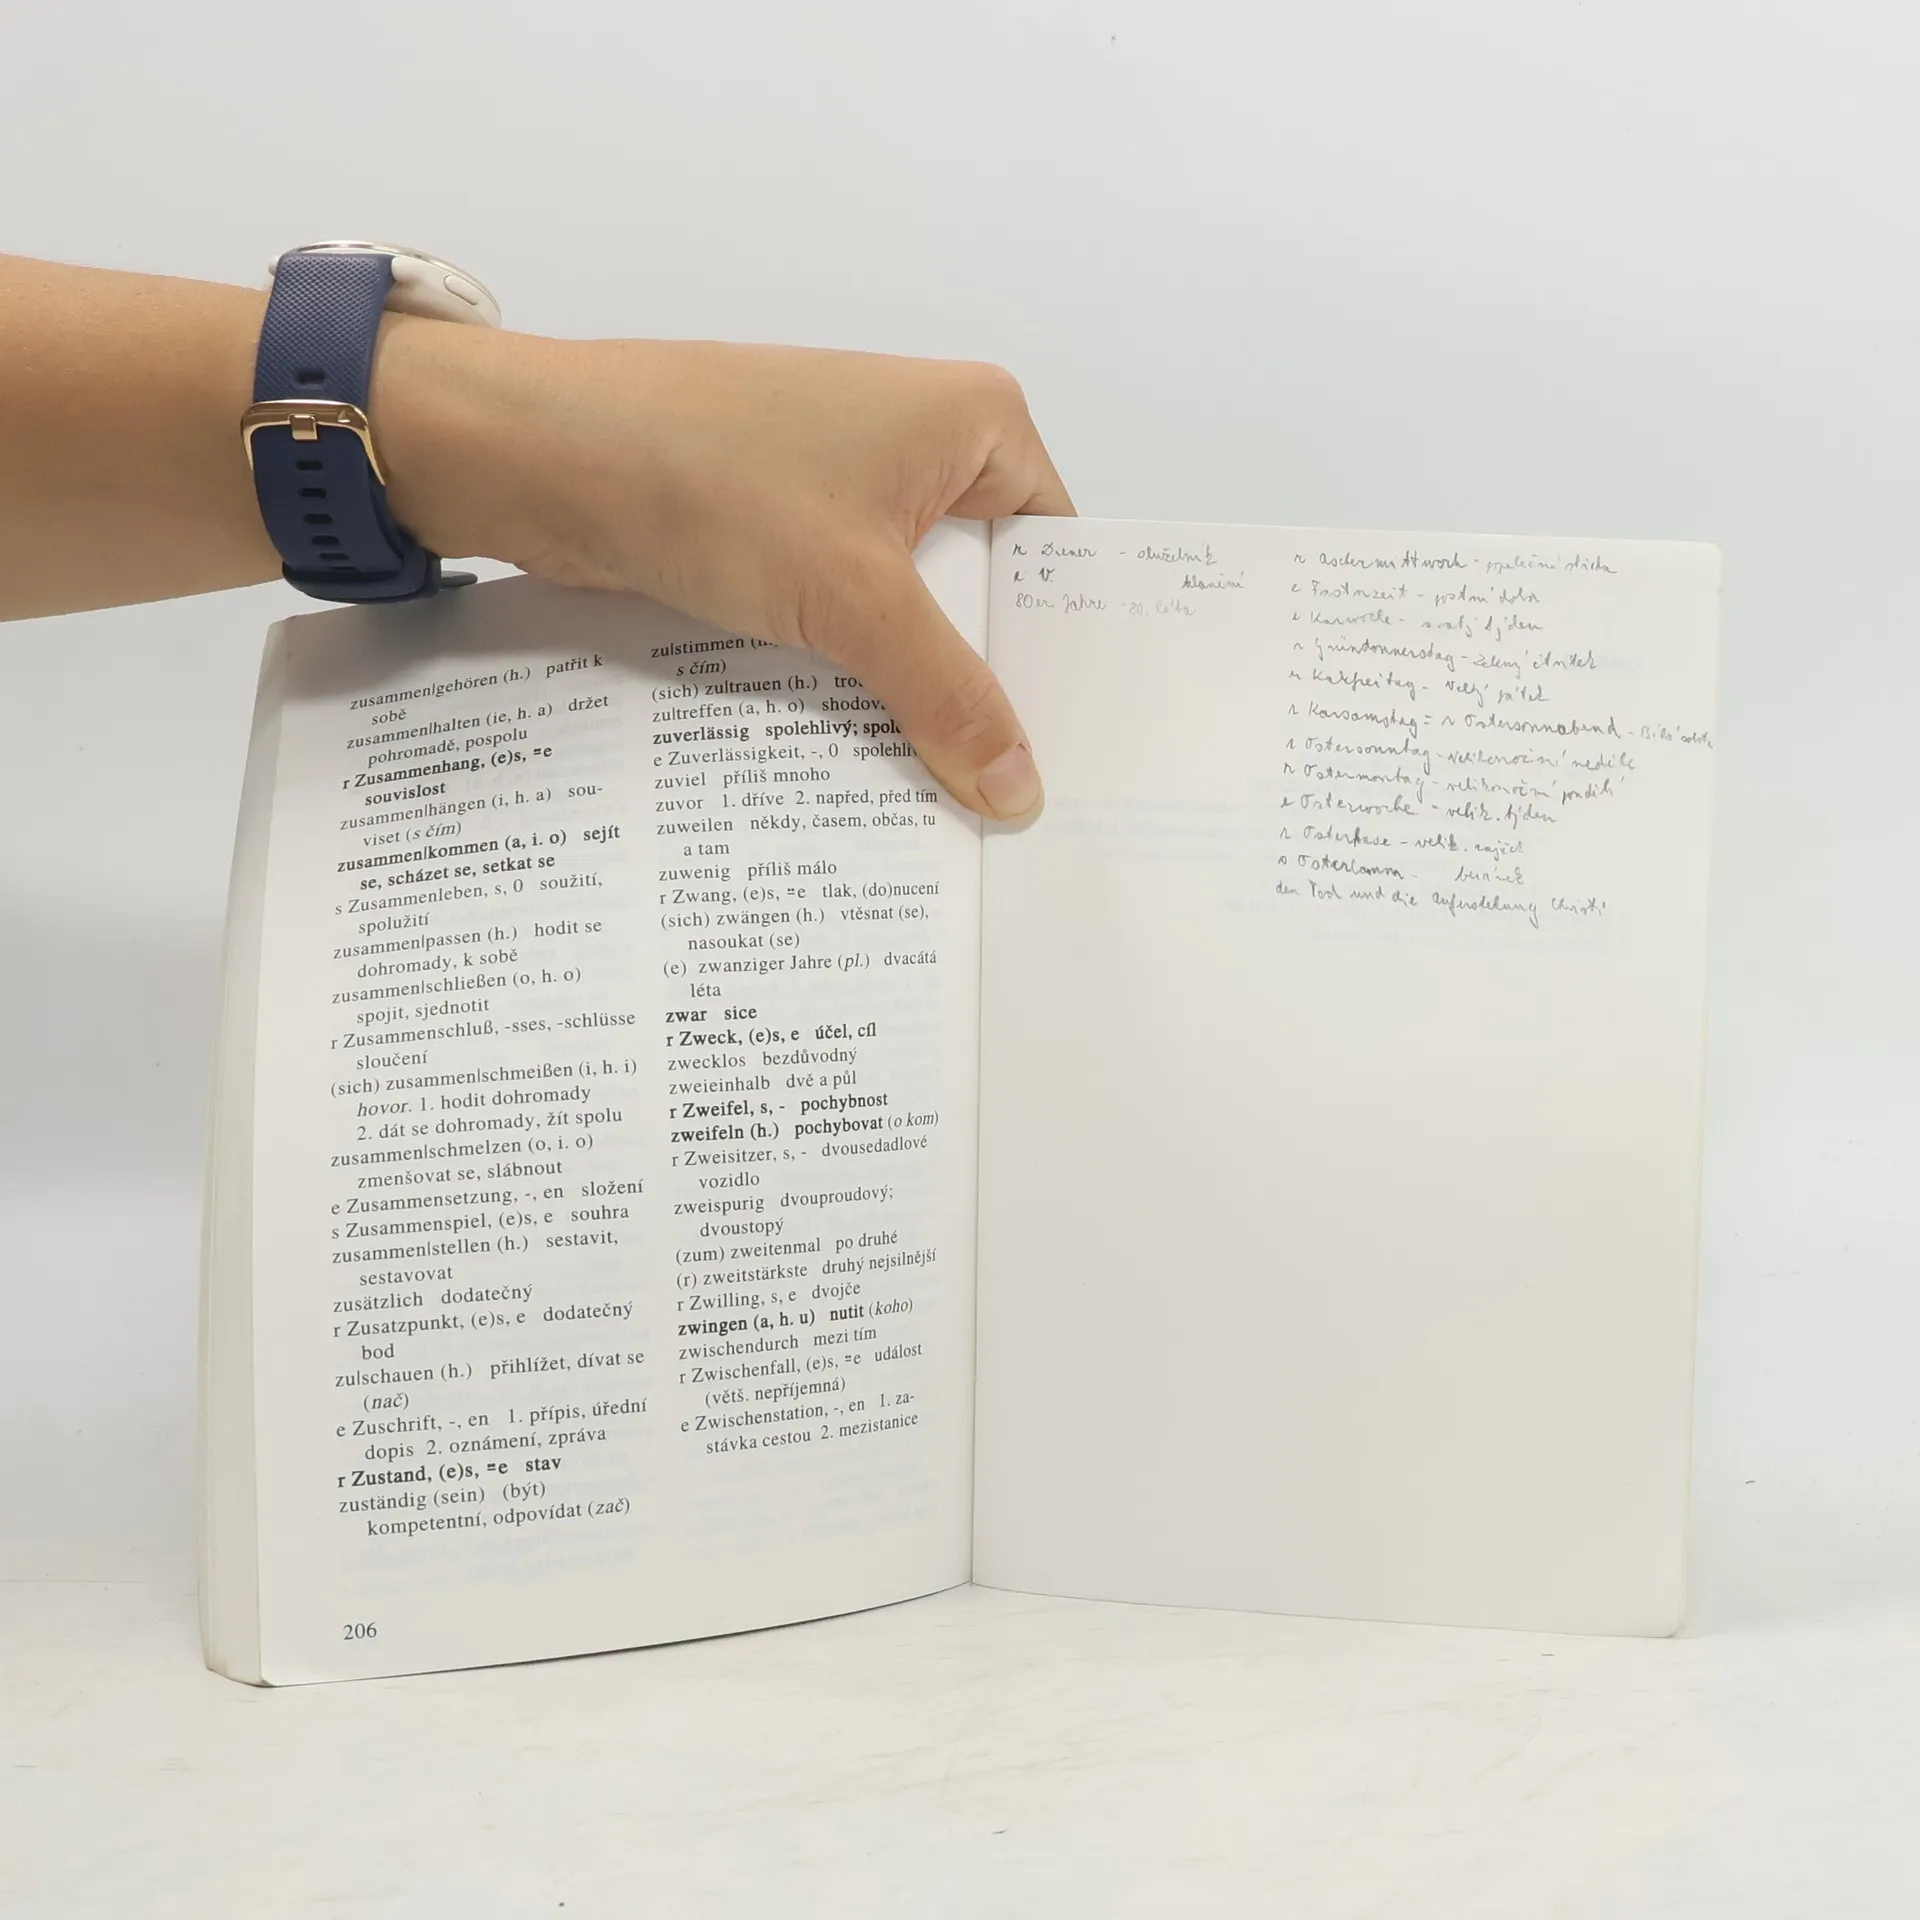 zusammen|gehören (h.) patřit k
sobě
zusammen|halten (ie, h. a) držet
pohromadě, pospolu
r Zusammenhang, (e)s, ⸚e
souvislost
zusammen|hängen (i, h. a) sou-
viset (s čím)
zusammen|kommen (a, i. o) sejít
se, scházet se, setkat se
s Zusammenleben, s, 0 soužití,
spolužití
zusammen|passen (h.) hodit se
dohromady, k sobě
zusammen|schließen (o, h. o)
spojit, sjednotit
r Zusammenschluß, -sses, -schlüsse
sloučení
(sich) zusammen|schmeißen (i, h. i)
hovor. 1. hodit dohromady
2. dát se dohromady, žít spolu
zusammen|schmelzen (o, i. o)
zmenšovat se, slábnout
e Zusammensetzung, -, en složení
s Zusammenspiel, (e)s, e souhra
zusammen|stellen (h.) sestavit,
sestavovat
zusätzlich dodatečný
r Zusatzpunkt, (e)s, e dodatečný
bod
zu|schauen (h.) přihlížet, dívat se
(nač)
e Zuschrift, -, en 1. přípis, úřední
dopis 2. oznámení, zpráva
r Zustand, (e)s, ⸚e stav
zuständig (sein) (být)
kompetentní, odpovídat (zač)
206
zu|stimmen
s čím)
(sich) zu|trauen (h.)
zu|treffen (a, h. o)
zuverlässig spolehlivý;
e Zuverlässigkeit, -, 0
zuviel příliš mnoho
zuvor 1. dříve 2. napřed, před tím
zuweilen někdy, časem, občas, tu
a tam
zuwenig příliš málo
r Zwang, (e)s, ⸚e tlak, (do)nucení
(sich) zwängen (h.) vtěsnat (se),
nasoukat (se)
(e) zwanziger Jahre (pl.) dvacátá
léta
zwar sice
r Zweck, (e)s, e účel, cíl
zwecklos bezdůvodný
zweieinhalb dvě a půl
r Zweifel, s, - pochybnost
zweifeln (h.) pochybovat (o kom)
r Zweisitzer, s, - dvousedadlové
vozidlo
zweispurig dvouproudový;
dvoustopý
(zum) zweitenmal po druhé
(r) zweitstärkste druhý nejsilnější
r Zwilling, s, e dvojče
zwingen (a, h. u) nutit (koho)
zwischendurch mezi tím
r Zwischenfall, (e)s, ⸚e událost
(větš. nepříjemná)
e Zwischenstation, -, en 1. za-
stávka cestou 2. mezistanice
r Diener - služebník
e V. klanění
80er Jahre - 80. léta
r Aschermittwoch - popeleční středa
e Fastnzeit - postní doba
e Karwoche - svatý týden
r Gründonnerstag - Zelený čtvrtek
r Karfreitag - Velký pátek
r Karsamstag = r Ostersonnabend - Bílá sobota
r Ostersonntag - velikonoční neděle
r Ostermontag - velikonoční pondělí
e Osterwoche - velik. týden
r Osterhase - velik. zajíček
s Osterlamm - beránek
den Tod und die Auferstehung Christi